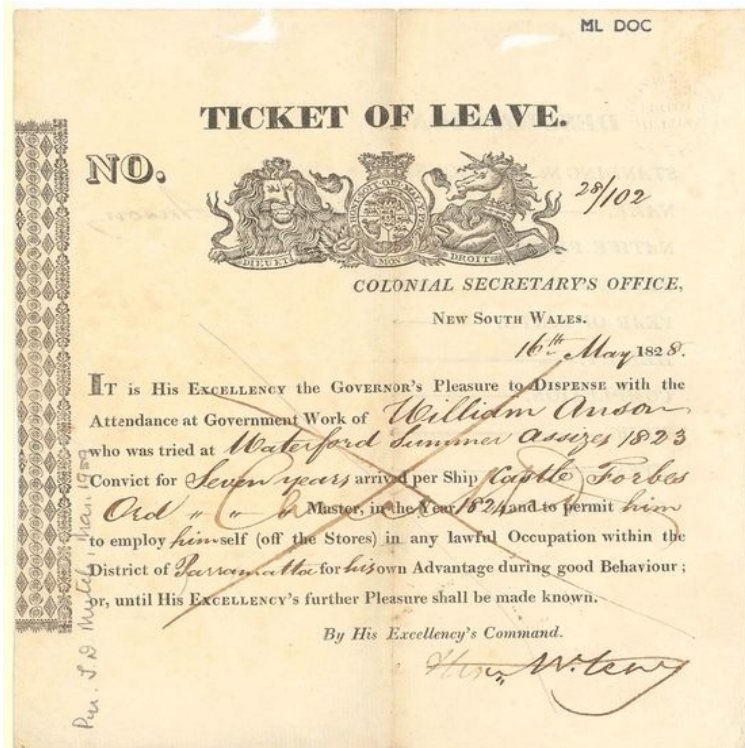 ML DOC
TICKET OF LEAVE.
NO.
28/102
DIEU ET MON DROIT
COLONIAL SECRETARY'S OFFICE,
NEW SOUTH WALES.
16th May 1828.
IT is His EXCELLENCY the GOVERNOR'S Pleasure to DISPENSE with the
Attendance at Government Work of William Anson
who was tried at Waterford Summer Assizes 1823
Convict for Seven years arrived per Ship Castle Forbes
Ord " " " Master, in the Year 1824 and to permit him
to employ himself (off the Stores) in any lawful Occupation within the
District of Parramatta for his own Advantage during good Behaviour ;
or, until His EXCELLENCY'S further Pleasure shall be made known.
By His Excellency's Command.